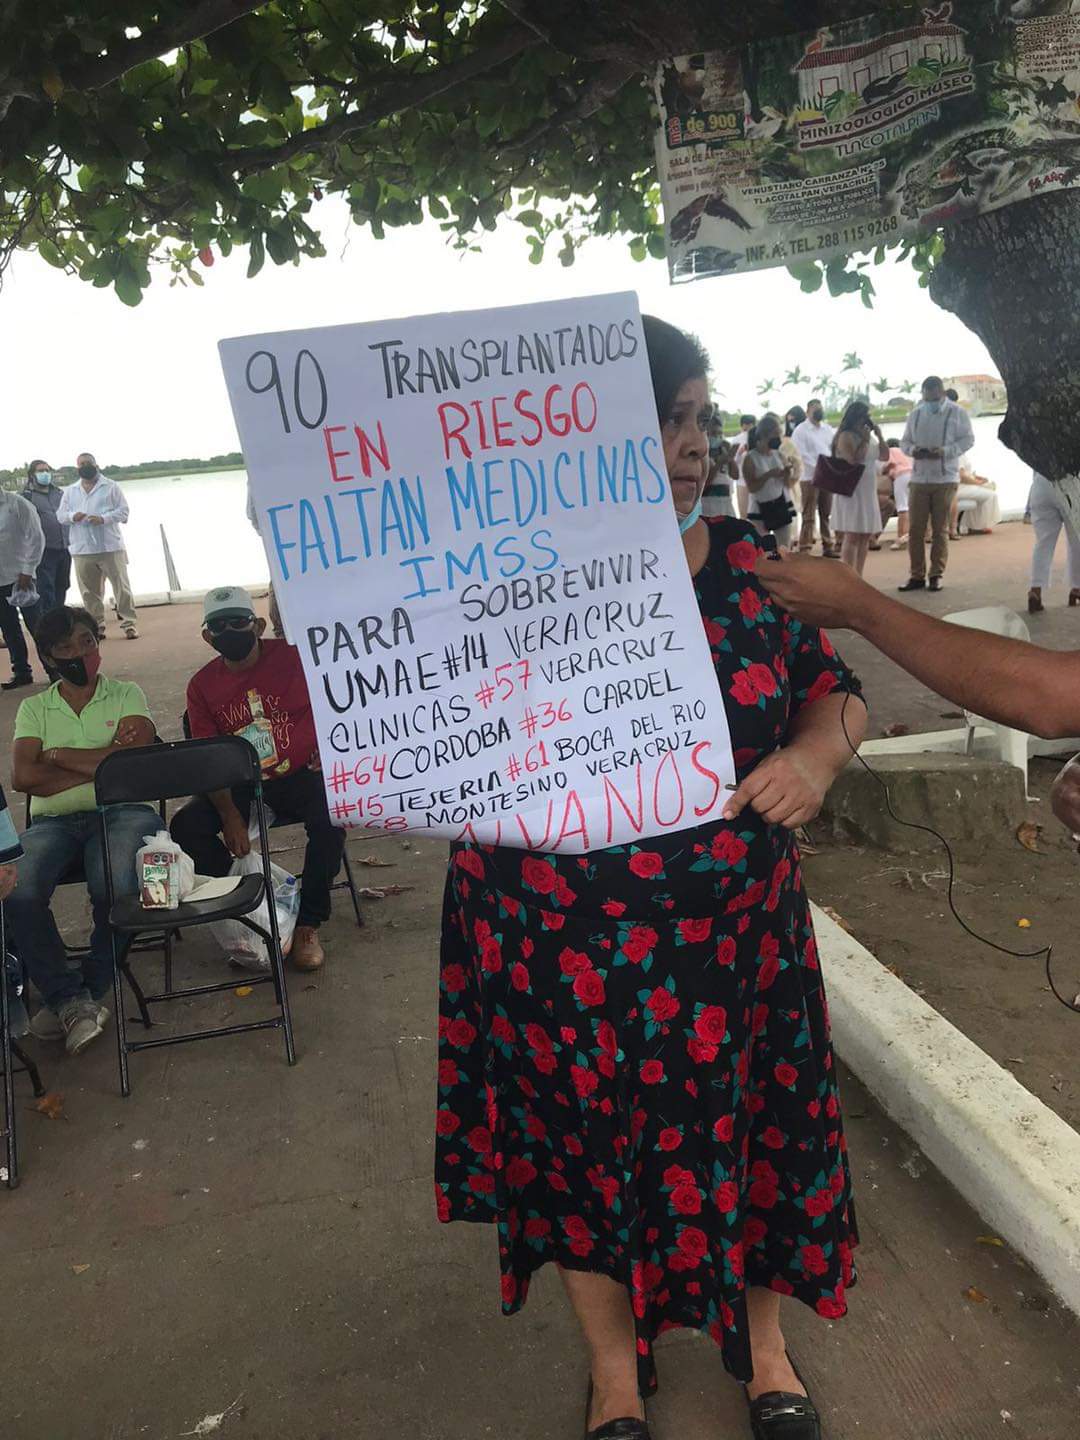 90 TRANSPLANTADOS
EN RIESGO
FALTAN MEDICINAS
IMSS.
PARA SOBREVIVIR.
UMAE #14 VERACRUZ
CLINICAS #57 VERACRUZ
#64 CORDOBA #36 CARDEL
#15 TEJERIA #61 BOCA DEL RIO
#68 MONTESINO VERACRUZ
MINIZOOLOGICO MUSEO
TLACOTALPAN
más de 900
SALA DE
VENUSTIANO CARRANZA
TLACOTALPAN VERACRUZ
INF. AL TEL. 288 115 9268
Y MAS DE